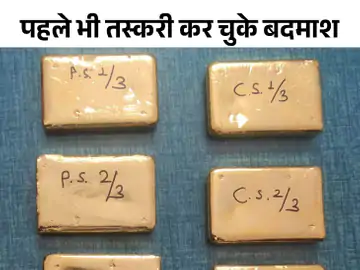 पहले भी तस्करी कर चुके बदमाश
P.S. 1/3
C.S. 1/3
P.S. 2/3
C.S. 2/3